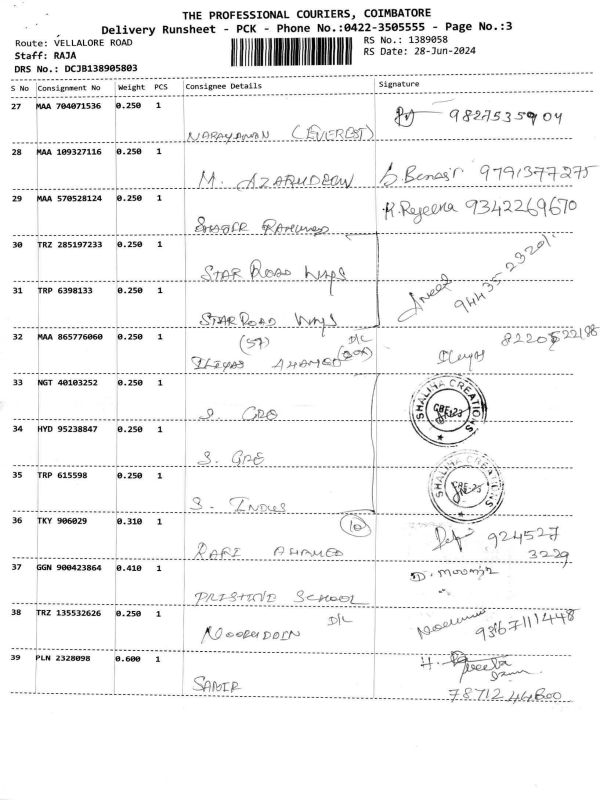 THE PROFESSIONAL COURIERS, COIMBATORE
Delivery Runsheet - PCK - Phone No.:0422-3505555 - Page No.:3
Route: VELLALORE ROAD
RS No.: 1389058
Staff: RAJA
RS Date: 28-Jun-2024
DRS No.: DCJB138905803
S No Consignment No Weight PCS Consignee Details Signature
27 MAA 704071536 0.250 1
NARAYANAN (EVEREST)
28 MAA 109327116 0.250 1
M. AZARUDEEN 9791377275
29 MAA 570528124 0.250 1
R. Rejeena 9342269670
30 TRZ 285197233 0.250 1
STAR ROAD WAYS
31 TRP 6398133 0.250 1
STAR ROAD WAYS
32 MAA 865776060 0.250 1
(57) D/L
ILIYAS AHAMED Iliyas
33 NGT 40103252 0.250 1
S. CRE
SHALIHA CREATIONS
34 HYD 95238847 0.250 1
S. CRE
35 TRP 615598 0.250 1
SHALIHA CREATIONS
S. INDUS
36 TKY 906029 0.310 1
(10)
RAFI AHAMED 924527
3229
37 GGN 900423864 0.410 1
PRISTINE SCHOOL
38 TRZ 135532626 0.250 1
NOORUDDIN D/L
39 PLN 2328098 0.600 1
SAMIR